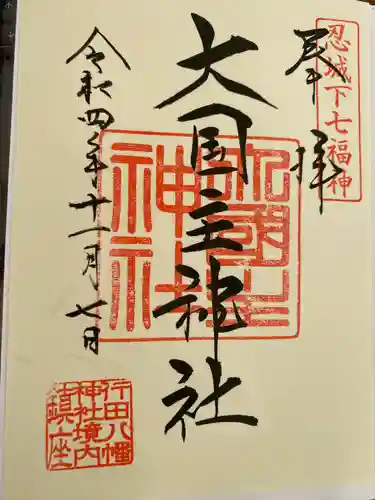 忍城下七福神
奉拝
大国主神社
大國主
神社
令和四年十一月七日
行田八幡
神社境内
鎮座